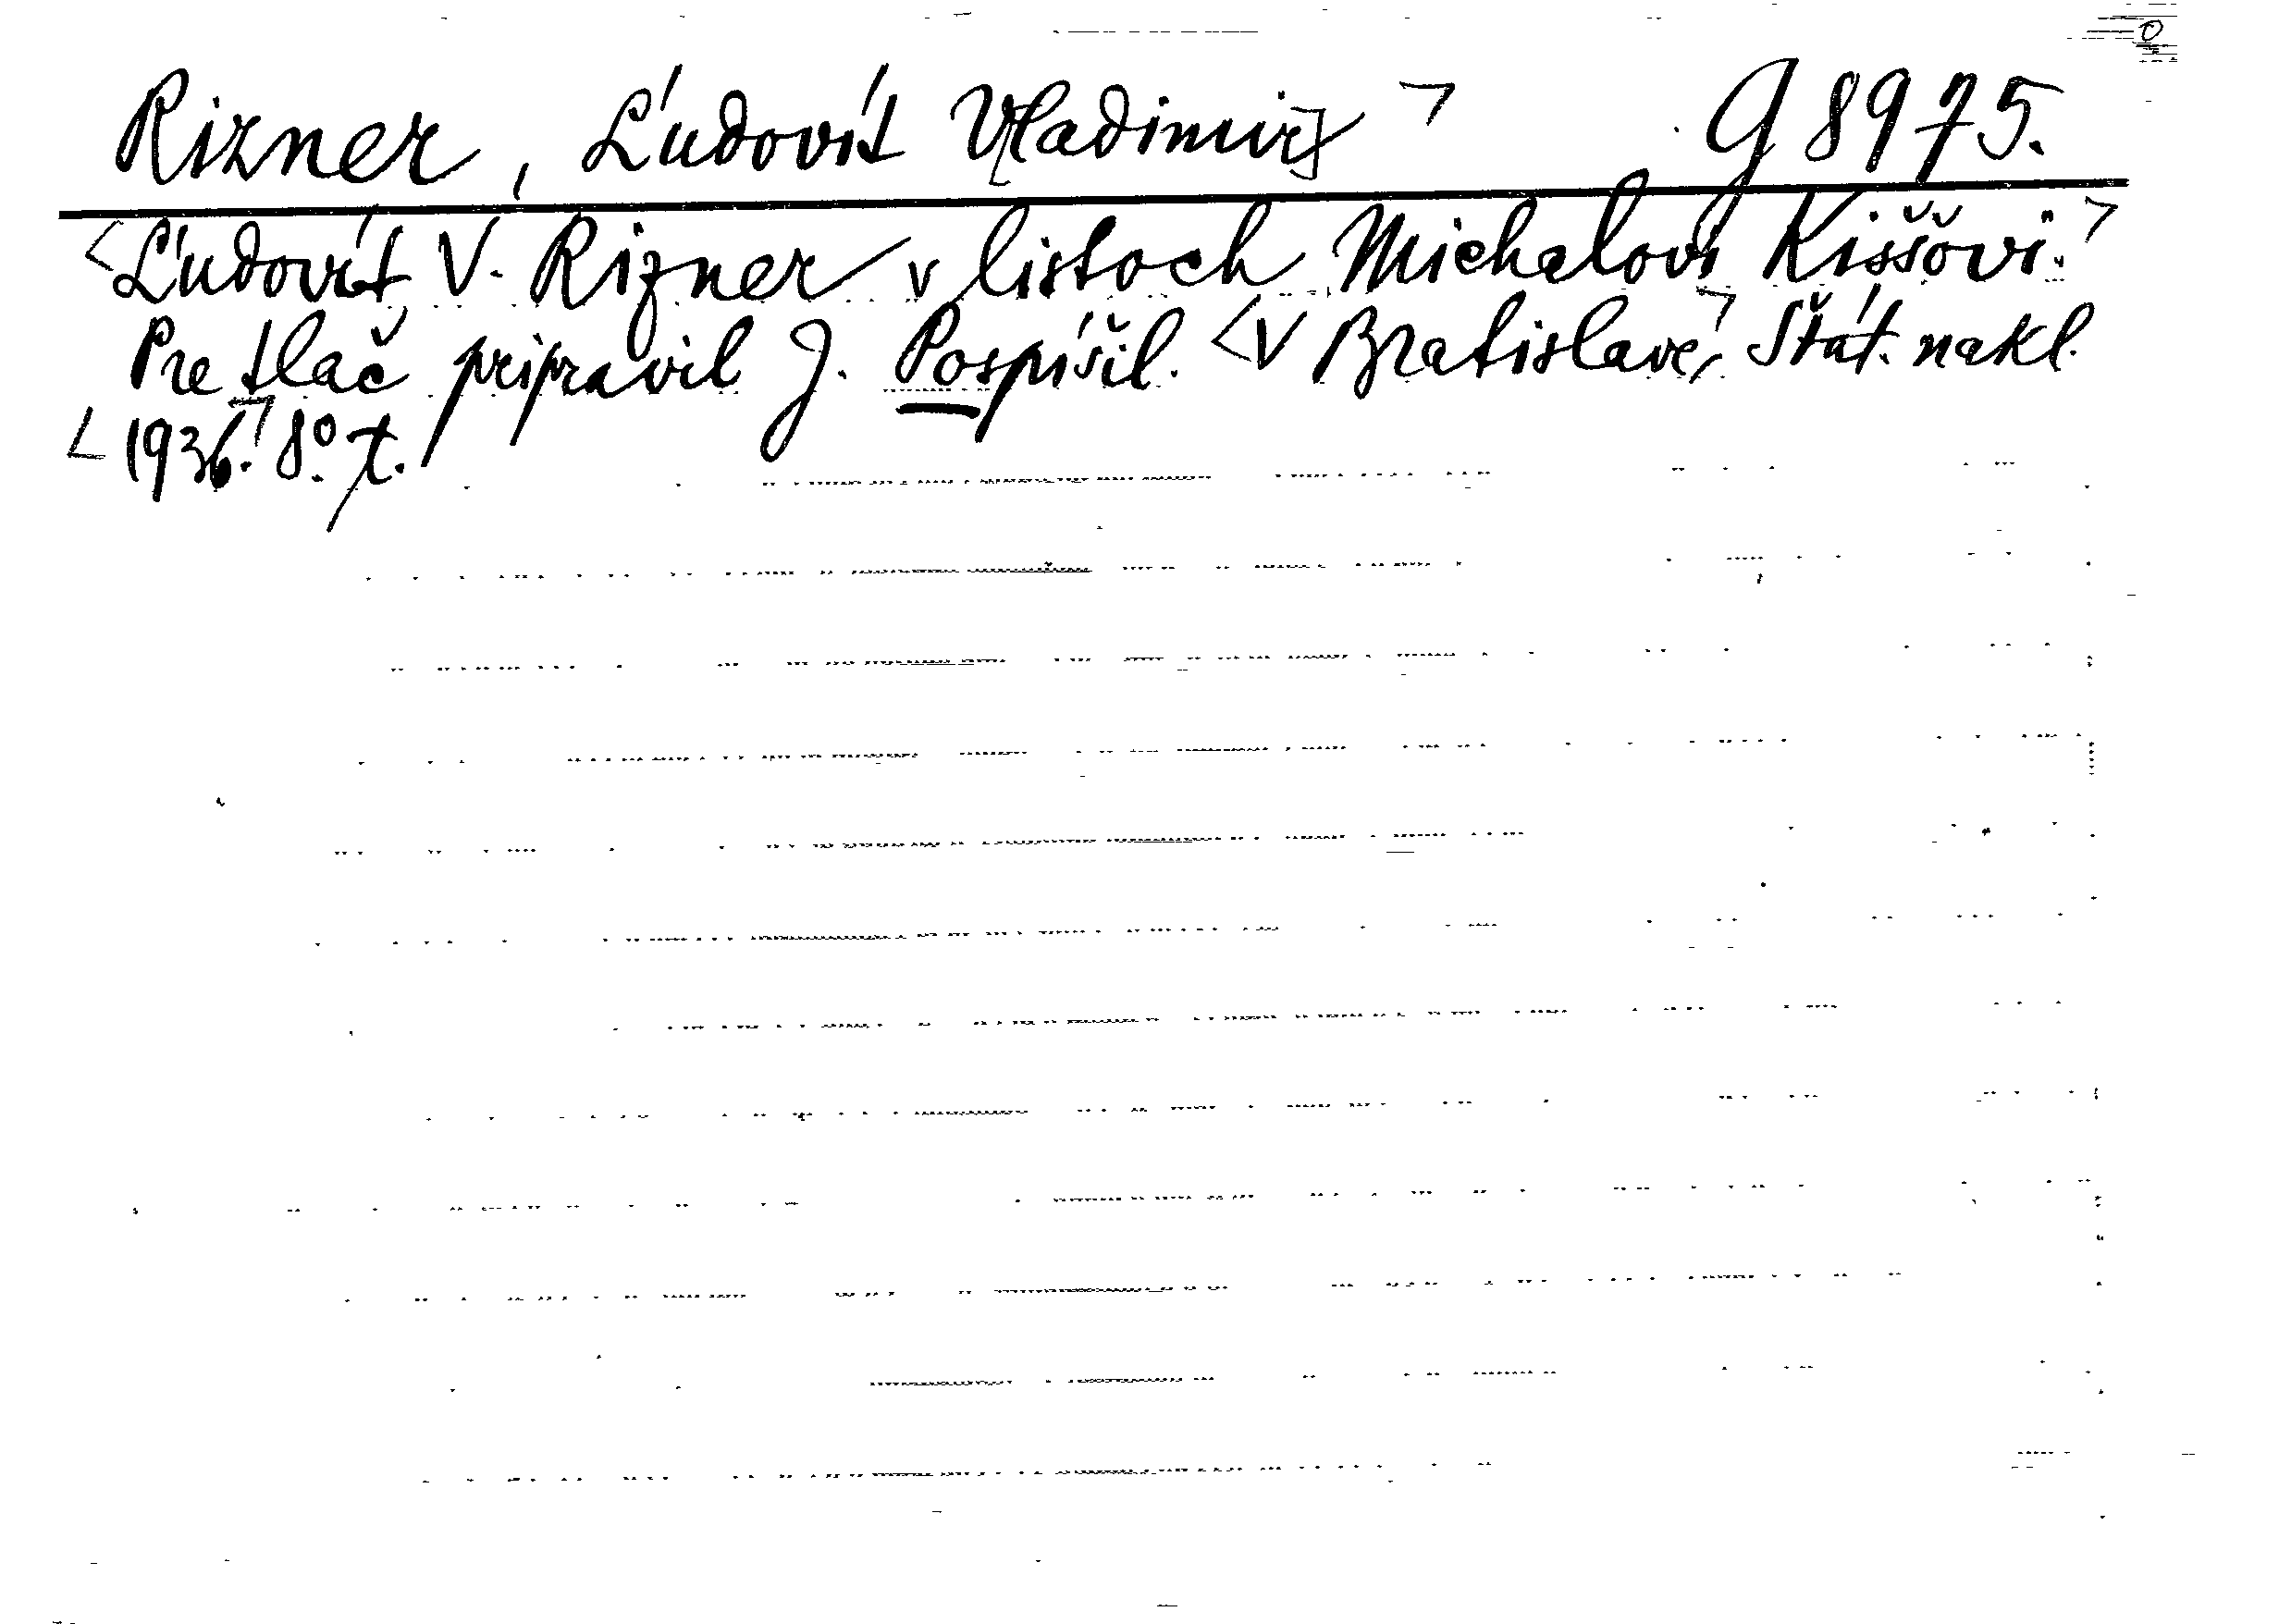 Rizner, Ľudovít V[ladimír] G 8975.
Ľudovít V. Rizner v listoch Michalovi Kiššovi.
Pre tlač pripravil J. Pospíšil. V Bratislave, Štát. nakl.
1936. 8°. t.